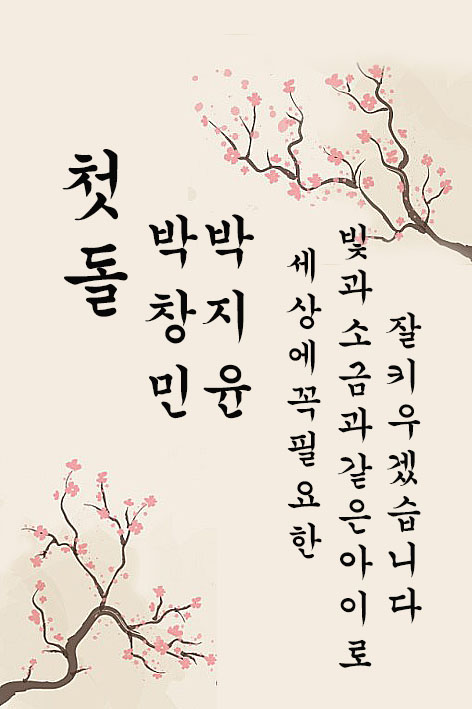 첫돌
박창민
박지윤
세상에꼭필요한
빛과소금과같은아이로
잘키우겠습니다